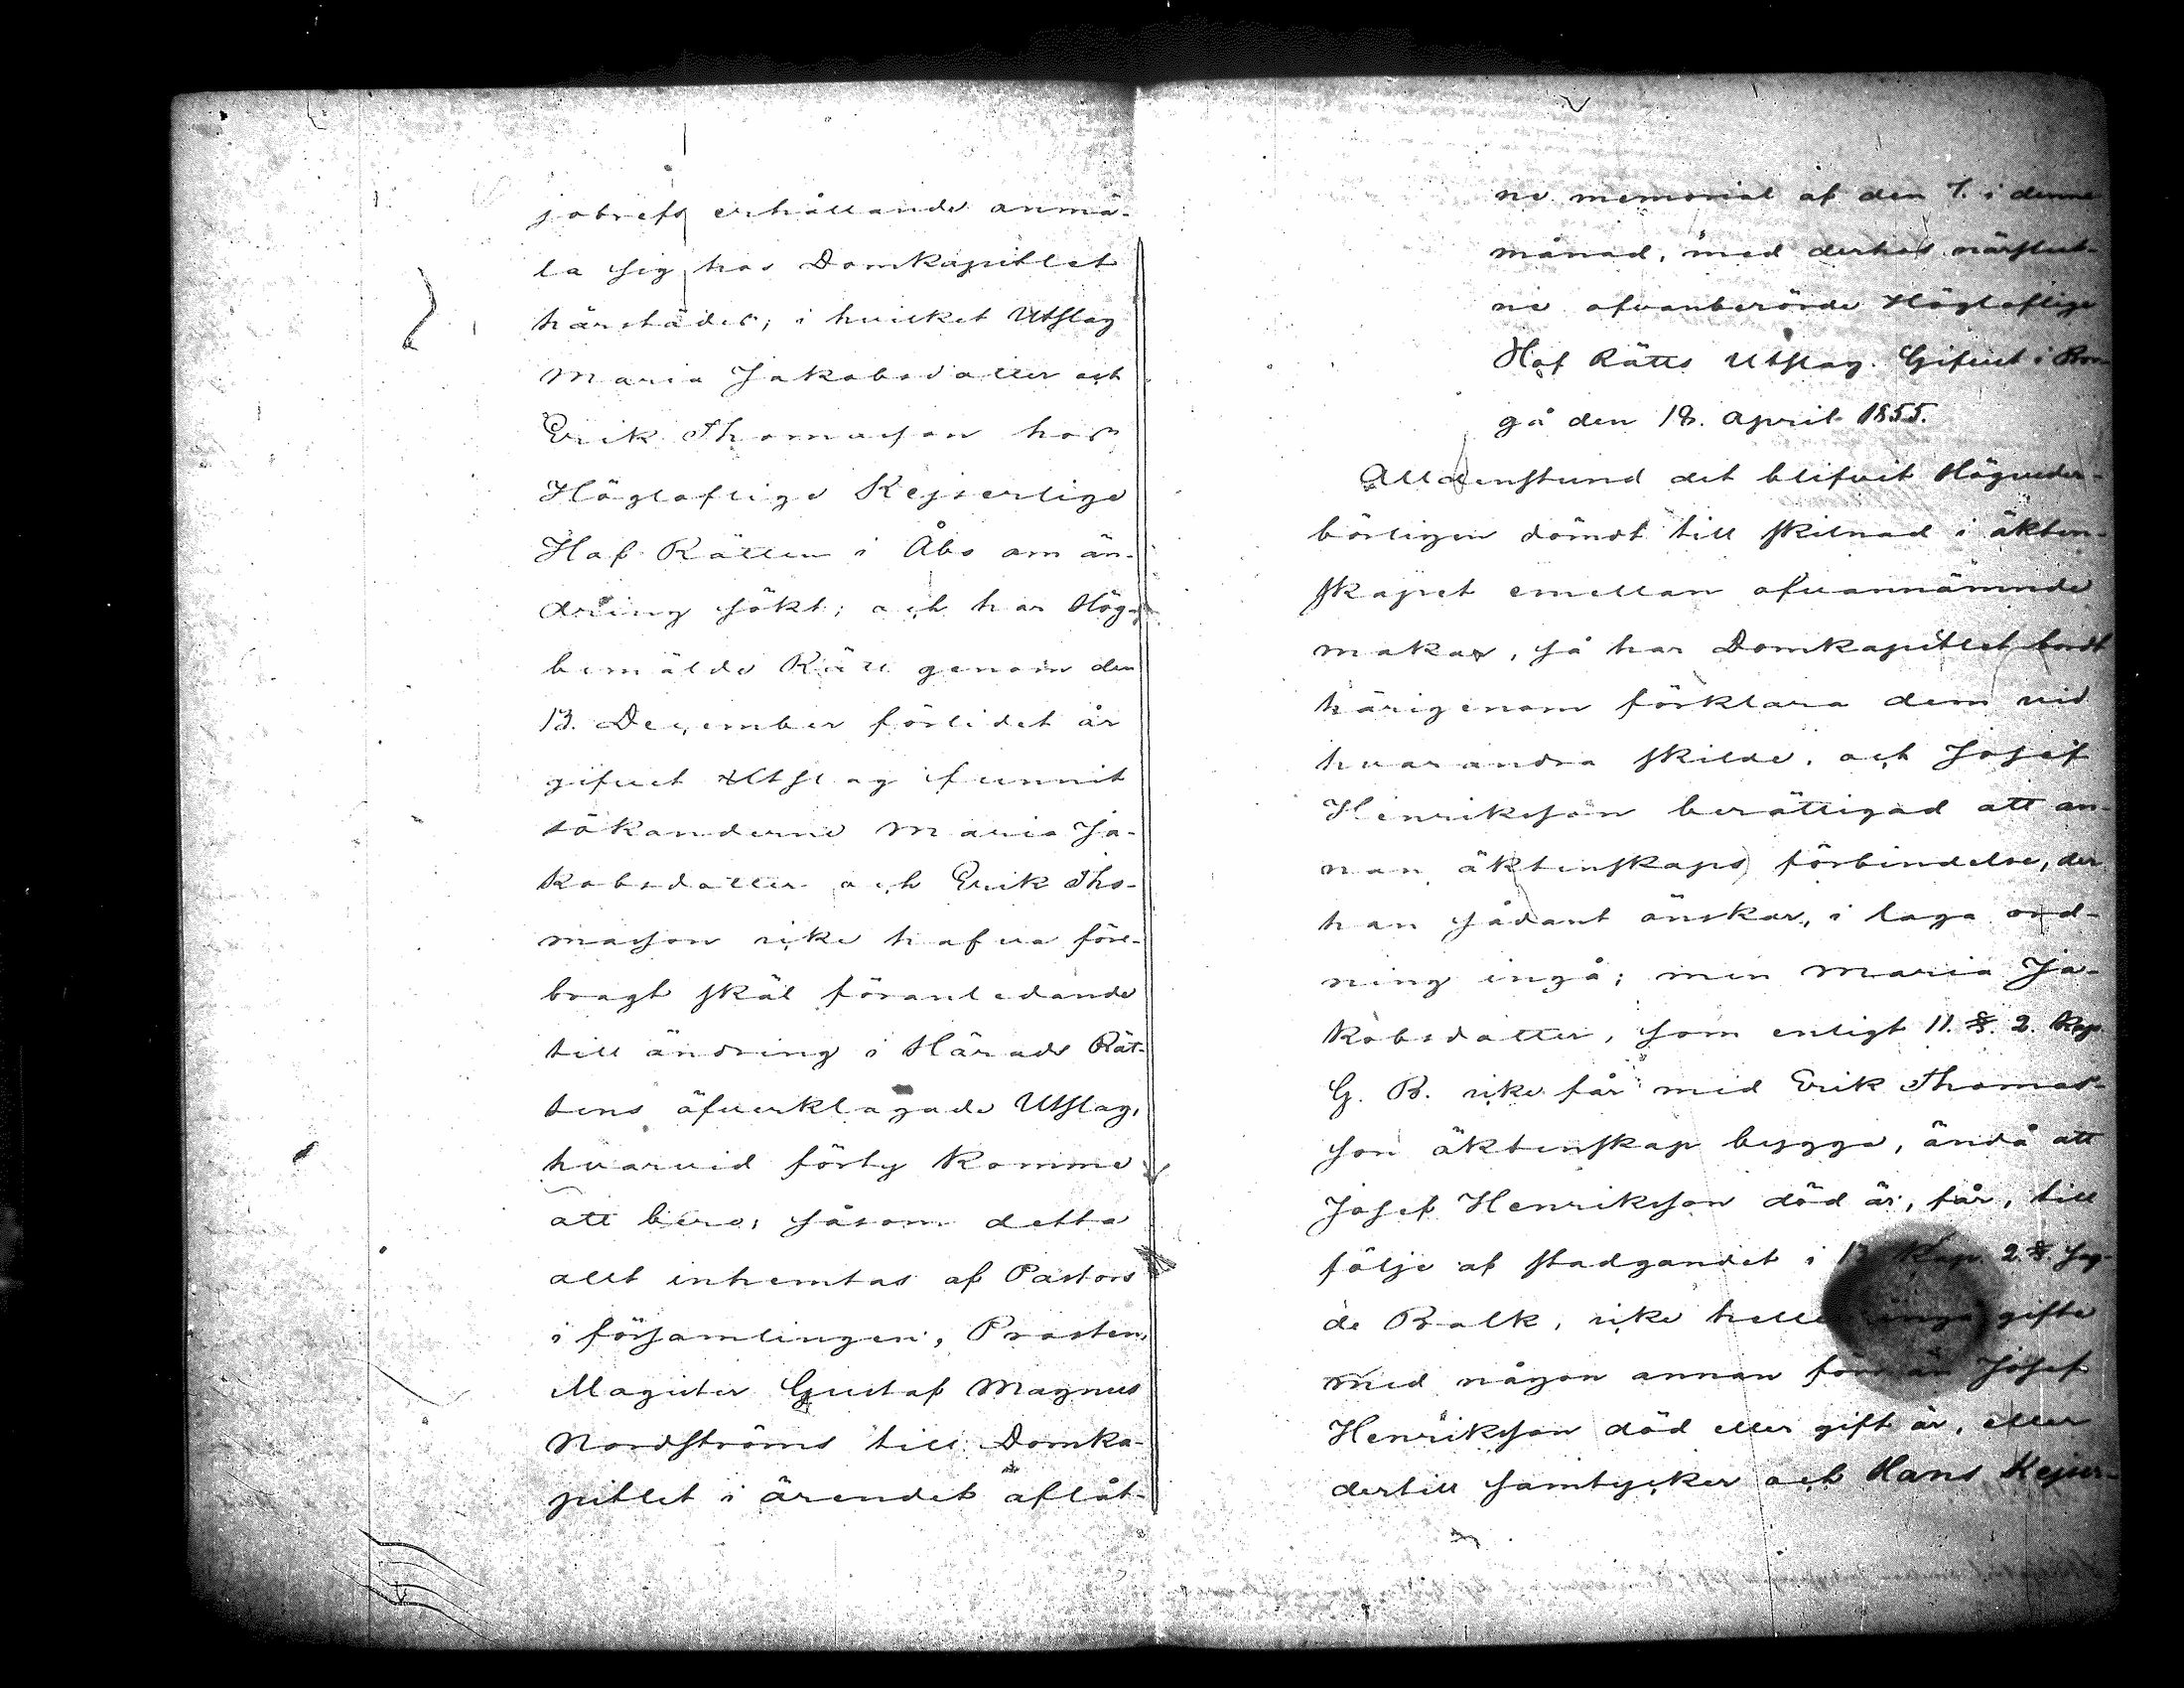 jobrefs erhållande anmä-
la sig hos Domkapitlet
härstädes; i hvilket Utslag
Maria Jakobsdotter och
Erik Thomasson hos
Högloflige Kejserlige
Hof Rätten i Åbo om än-
dring sökt; och har Hög-
bemälde Rätt genom den
13. December förlidet år
gifvet Utslag funnit
sökanderne Maria Ja-
kobsdotter och Erik Tho-
masson icke hafva före-
bragt skäl föranledande
till ändring i Härads Rät-
tens öfverklagade Utslag,
hvarvid förty komme
att bero; såsom detta
allt inhemtas af Pastors
i församlingen, Prosten,
Magister Gustaf Magnus
Nordströms till Domka-
pitlet i ärendet aflåt-
ne memorial af den 7. i denne
månad, med derhos närslut-
ne ofvanberörde Högloflige
Hof Rätts Utslag. Gifvet i Bor-
gå den 18. April 1855.
Alldenstund det blifvit Högveder-
börligen dömdt till skilnad i äkten-
skapet emellan ofvannämnde
makar, så har Domkapitlet bordt
härigenom förklara dem vid
hvarandra skilde, och Josef
Henriksson berättigad att an-
nan äktenskaps förbindelse, der
han sådant önskar, i laga ord-
ning ingå; men Maria Ja-
kobsdotter, som enligt 11. §. 2. Kap.
G. B. icke får med Erik Thomas-
son äktenskap bygga, ändå att
Josef Henriksson död är, får, till
följe af stadgandet i 13 Kap. 2. §. sag-
de Balk, icke heller ingå gifte
med någon annan förr än Josef
Henriksson död eller gift är, eller
dertill samtycker och Hans Kejser-